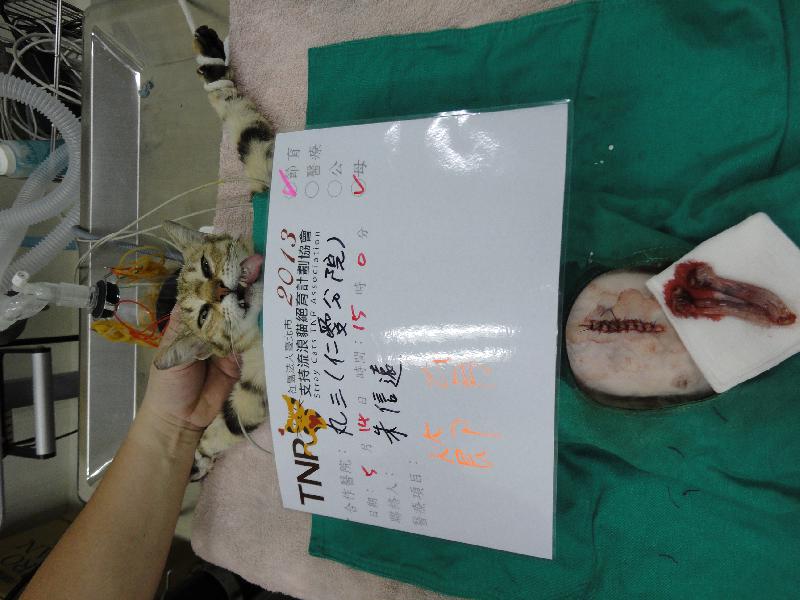 社團法人臺北市
支持流浪貓絕育計劃協會
Stray Cats TNR Association
TNR
2013
合作醫院：丸三(仁愛公院)
日期：5月14日 時間：15時0分
聯絡人：朱信遠
醫療項目：
節育
醫療
公
母